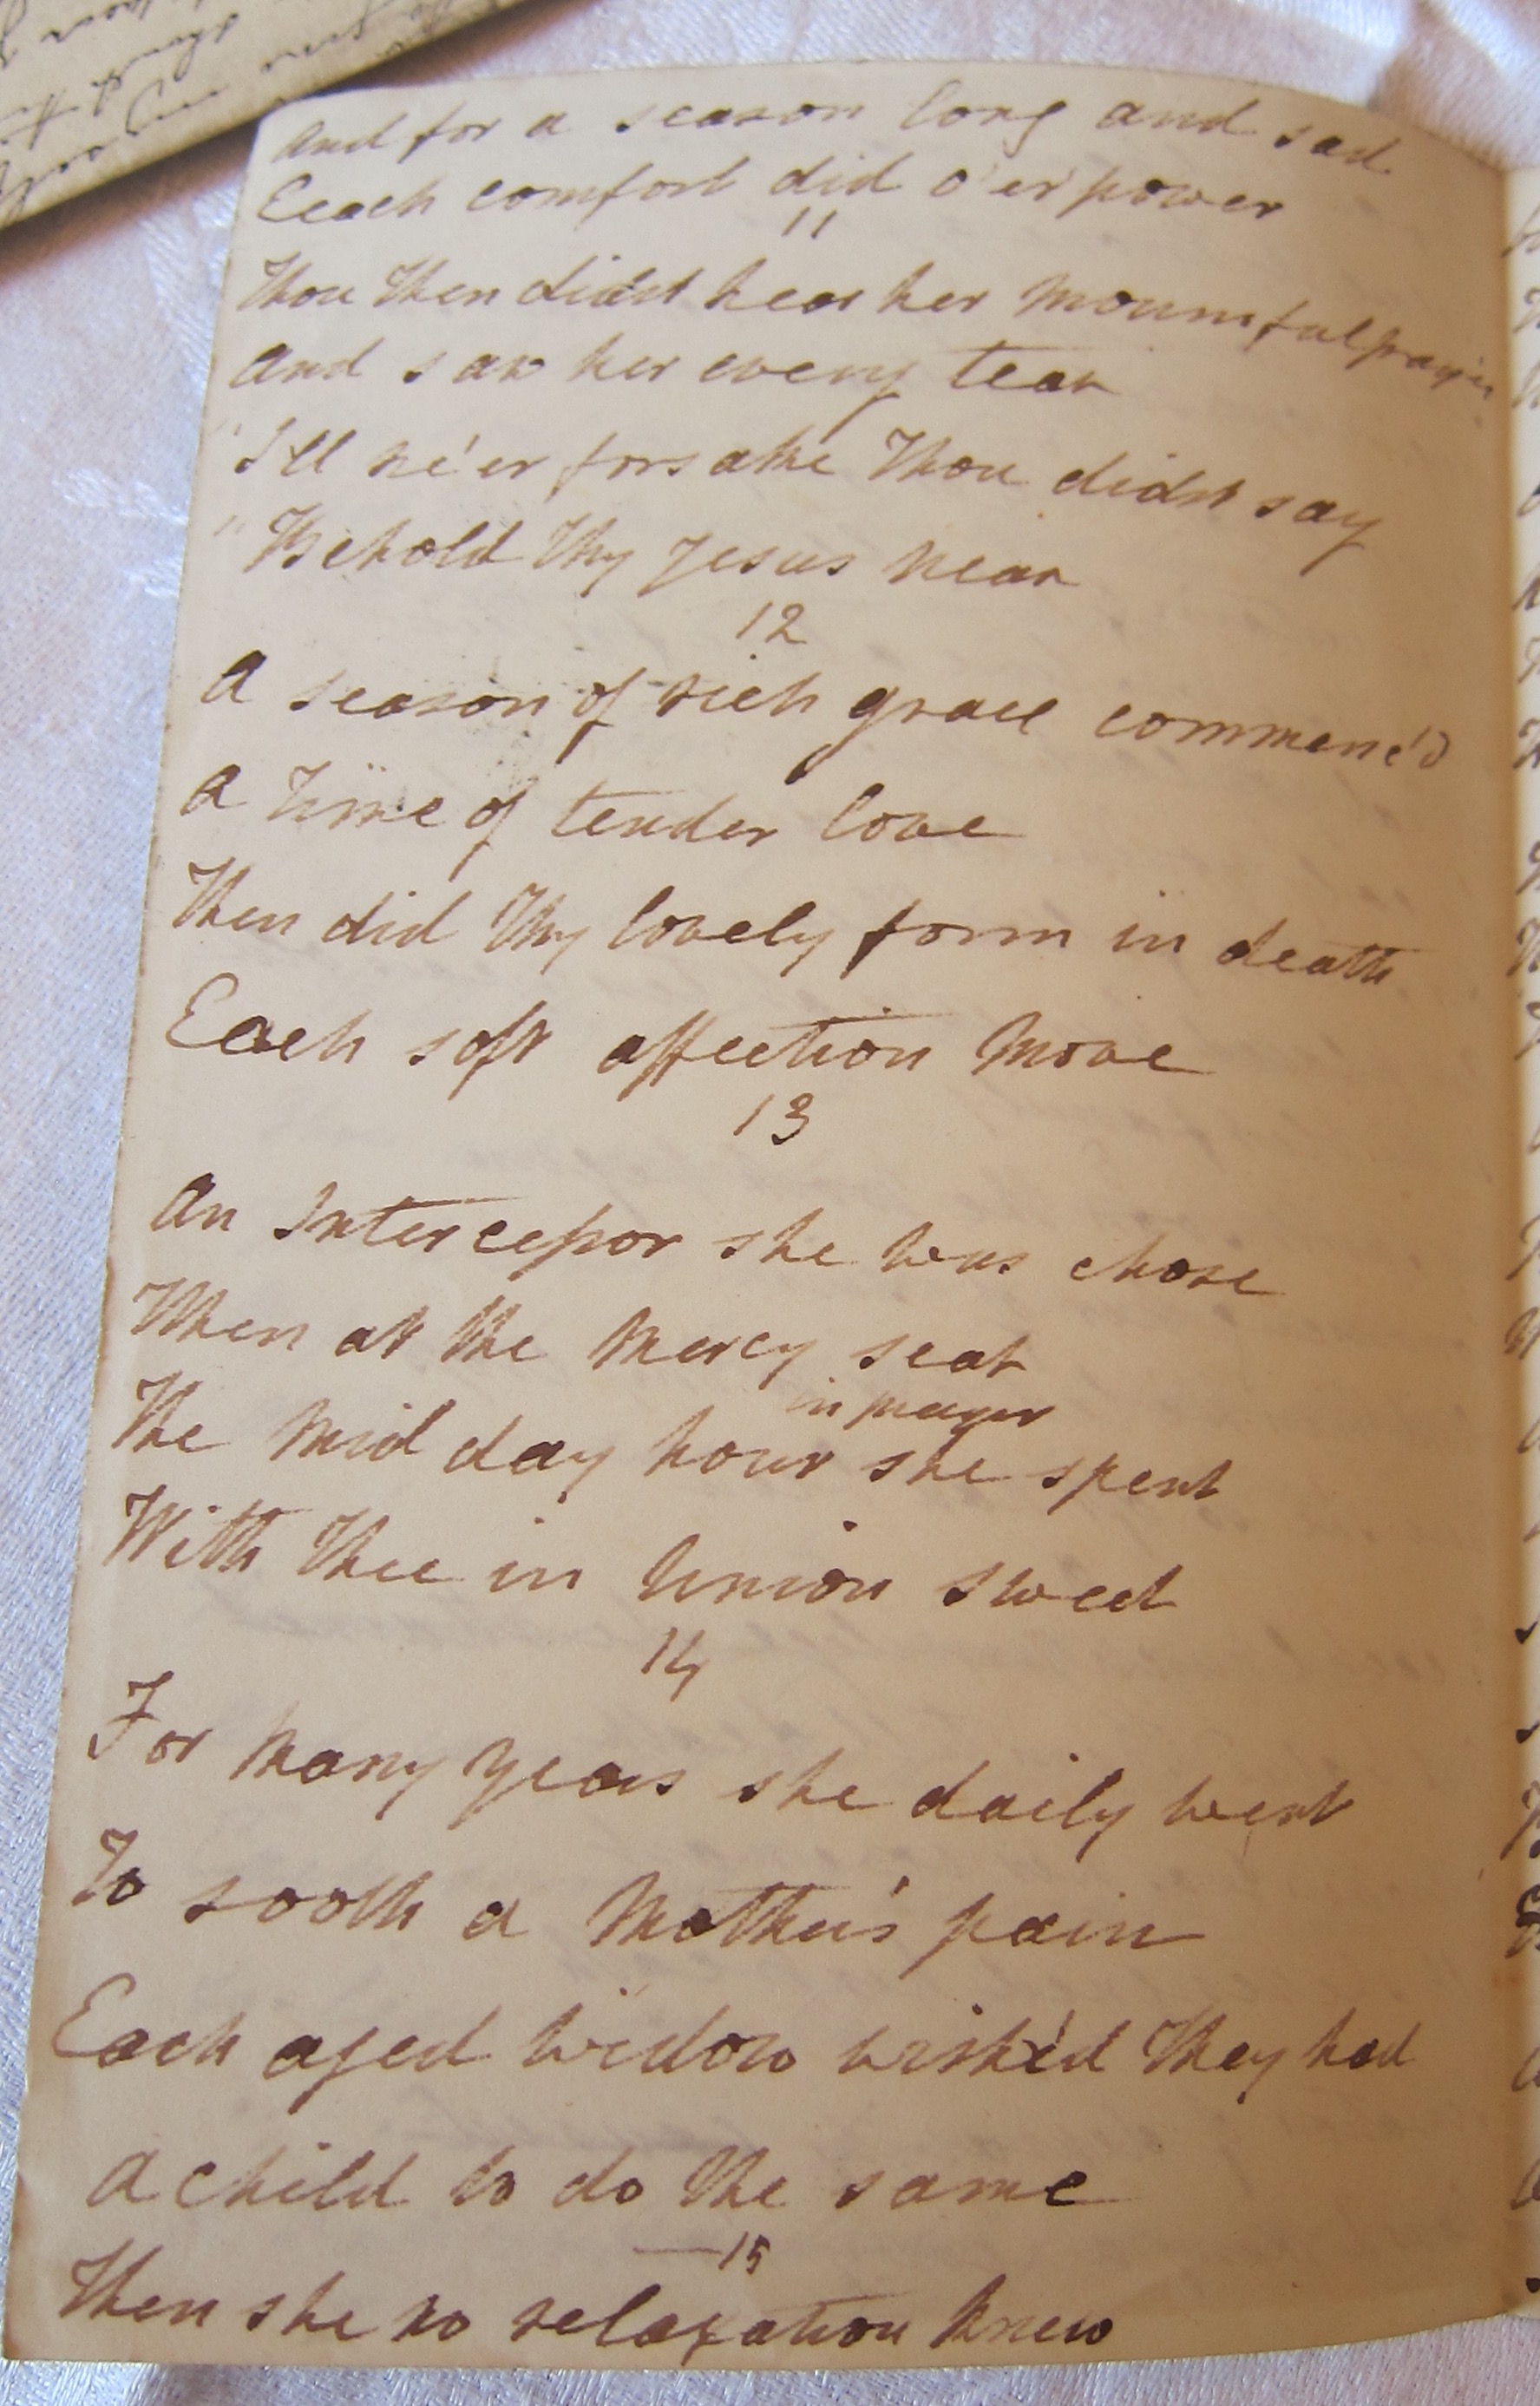 And for a season long and sad
Each comfort did o'er power
11
Thou then didst hear her mournful prayer
And saw her every tear
"I'll ne'er forsake Thou didst say
"Behold Thy Jesus near
12
A season of rich grace commenc'd
A time of tender love
Then did Thy lovely form in death
Each soft affection move
13
An Intercessor she was chose
When at the mercy seat
in prayer
The mid day hour she spent
With Thee in union sweet
14
For many years she daily went
To sooth a mother's pain
Each aged widow wish'd they had
A child to do the same
—15
Then she no relaxation knew